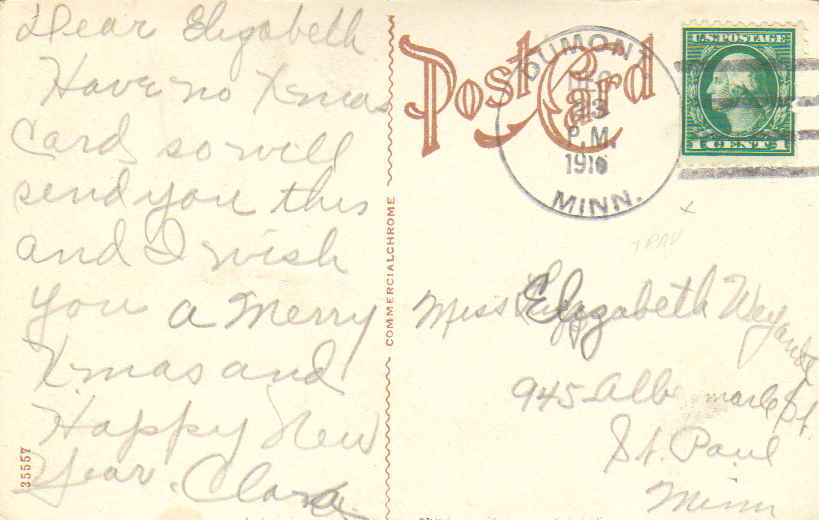 Dear Elizabeth
Have no Xmas
Card, so will
send you this
and I wish
you a Merry
Xmas and
Happy New
Year. Clara
35557
COMMERCIALCHROME
Post Card
DUMONT
DEC
23
P.M.
1916
MINN.
U.S. POSTAGE
1 CENT 1
Miss Elizabeth Weyandt
945 Albemarle St.
St. Paul
Minn